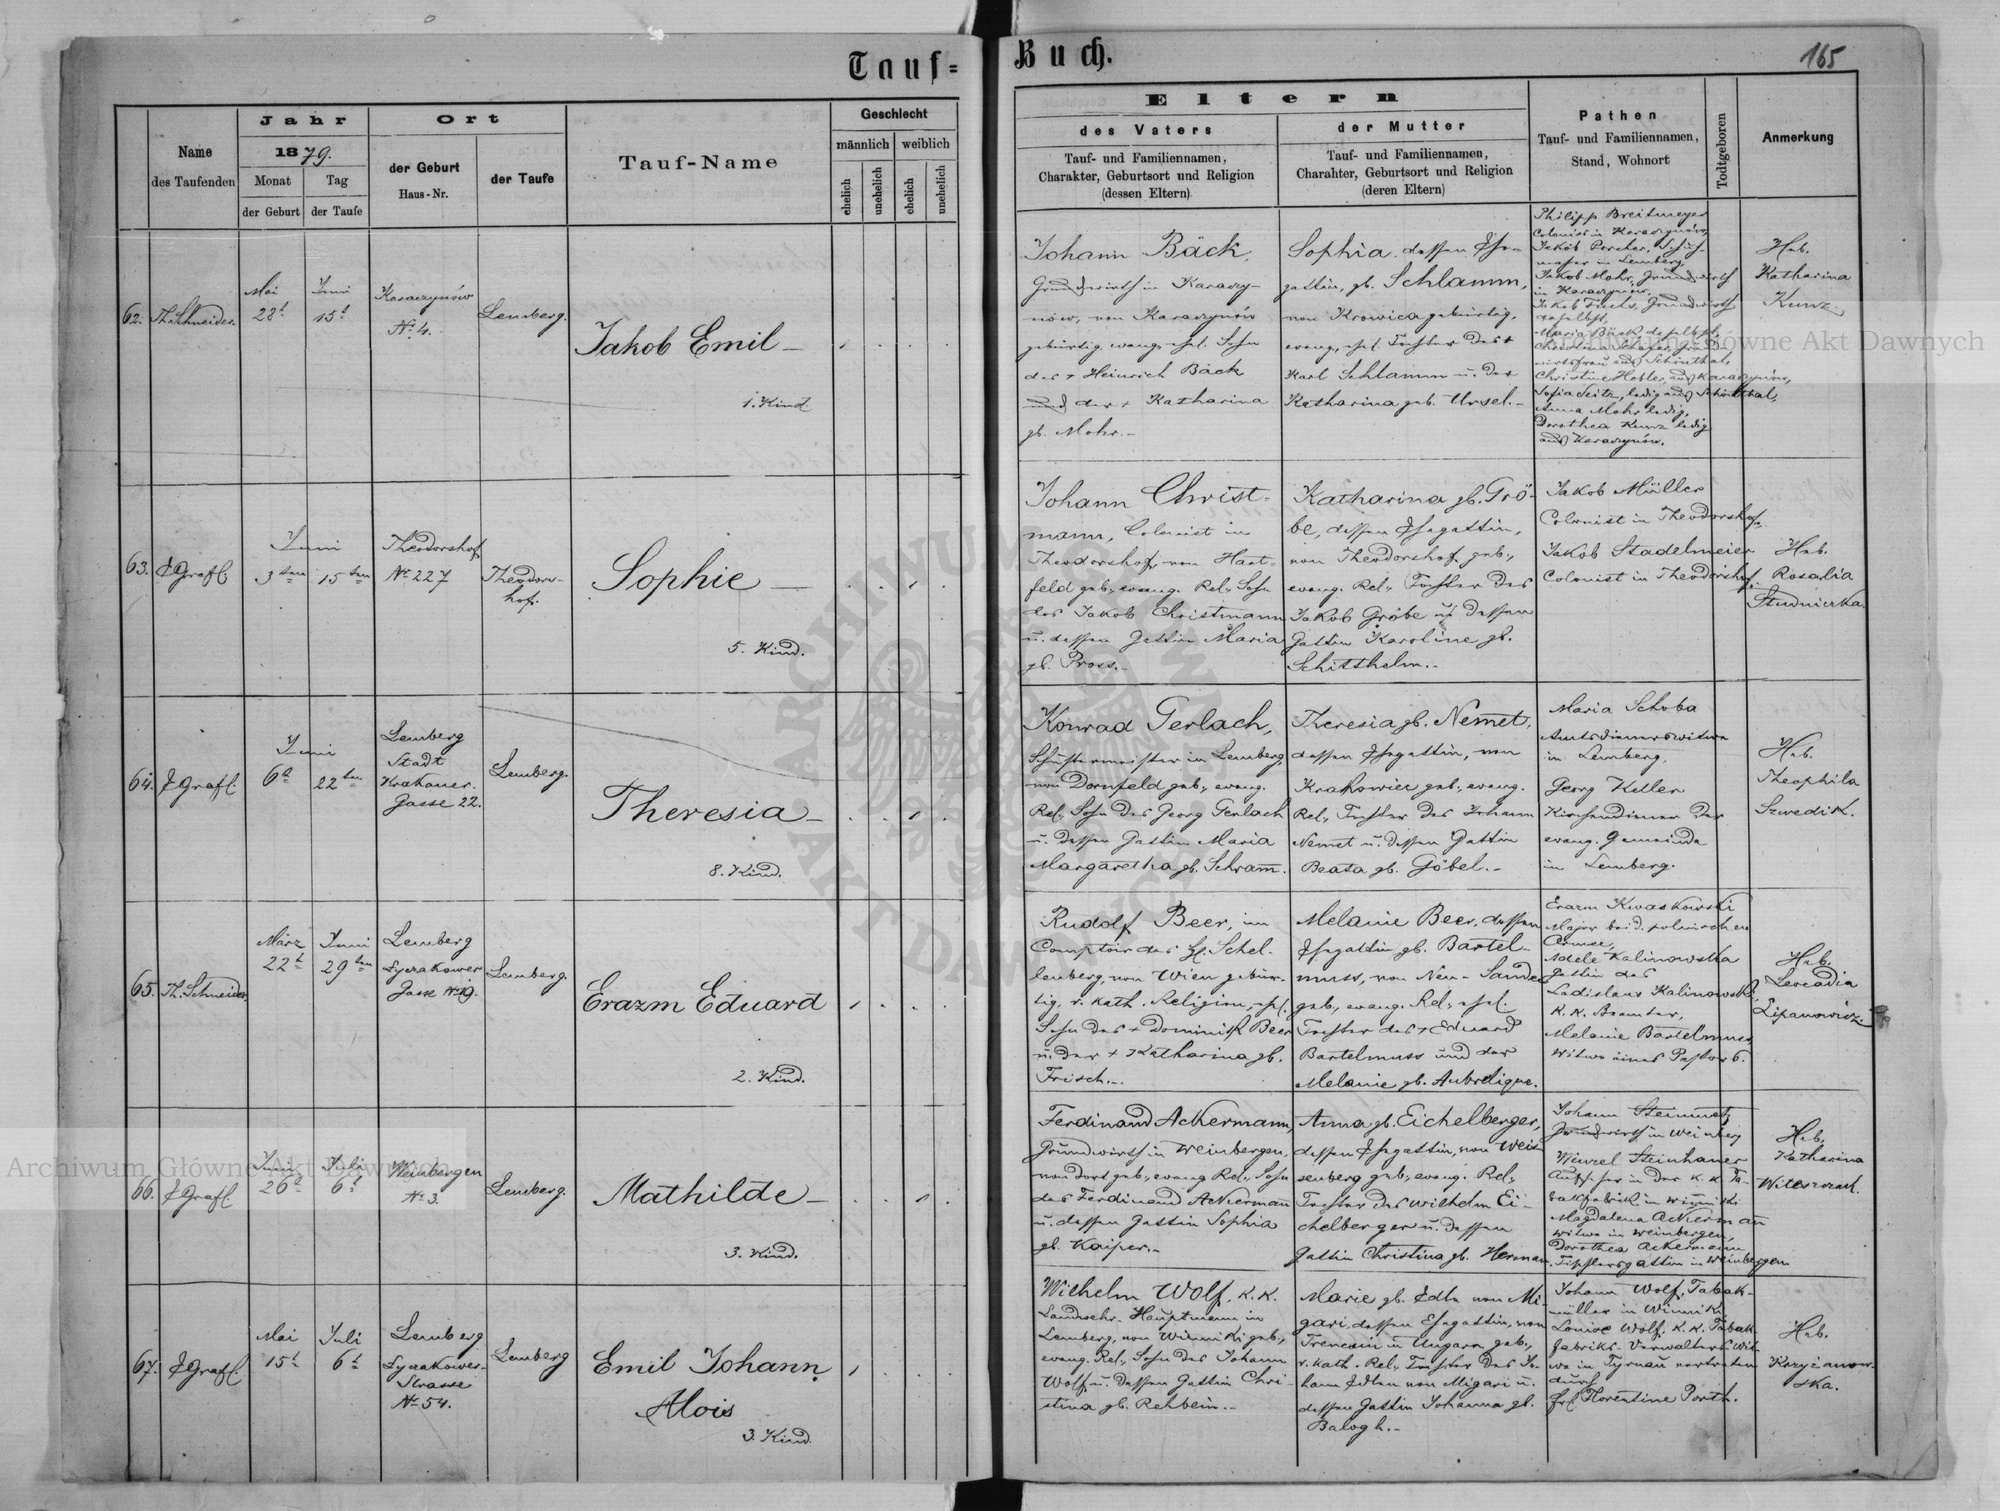 Tauf=
Buch.
165
Name
des Taufenden
Jahr
1879.
Monat
der Geburt
Tag
der Taufe
Ort
der Geburt
Haus-Nr.
der Taufe
Tauf-Name
Geschlecht
männlich
weiblich
ehelich
unehelich
ehelich
unehelich
Eltern
des Vaters
Tauf- und Familiennamen,
Charakter, Geburtsort und Religion
(dessen Eltern)
der Mutter
Tauf- und Familiennamen,
Charahter, Geburtsort und Religion
(deren Eltern)
Pathen
Tauf- und Familiennamen,
Stand, Wohnort
Todtgeboren
Anmerkung
62.
Th. Schneider.
Mai
28t
Juni
15t
Karaczynów
No 4.
Lemberg.
Jakob Emil
1. Kind
Johann Bäck,
Grundwirth in Karaczy-
nów, von Karaczynów
gebürtig, evang., ehel. Sohn
des + Heinrich Bäck
und der + Katharina
gb. Mohr.
Sophia, dessen Ehe-
gattin, gb. Schlamm,
von Krowica gebürtig,
evang., ehel. Tochter des +
Karl Schlamm u. der
Katharina geb. Ursel.
Philipp Breitmeyer
Colonist in Karaczynów,
Jakob Porcher, Schuh-
macher in Lemberg,
Jakob Mohr, Grundwirth
in Karaczynów,
Jakob Fuchs, Grundwirth
daselbst,
Maria Bäck daselbst,
Christine Hobler, aus Karaczynów,
Sofia Seitz, ledig aus Schönthal,
Anna Mohr ledig,
Dorothea Kunz ledig
aus Karaczynów.
Heb.
Katharina
Kunz
63.
E Grafl
Juni
3ten
15ten
Theodorshof
No 227
Theodors-
hof.
Sophie
5. Kind.
Johann Christ-
mann, Colonist in
Theodorshof, von Hart-
feld geb., evang. Rel., Sohn
des Jakob Christmann
u. dessen Gattin Maria
gb. Pross.
Katharina gb. Grö-
be, dessen Ehegattin,
von Theodorshof geb.,
evang. Rel., Tochter des
Jakob Gröbe u. dessen
Gattin Karoline gb.
Schitthelm.
Jakob Müller
Colonist in Theodorshof.
Jakob Stadelmeier
Colonist in Theodorshof.
Heb.
Rosalia
Studnicka.
64.
E Grafl.
Juni
6t
22ten
Lemberg
Stadt
Krakauer-
Gasse 22.
Lemberg.
Theresia
8. Kind.
Konrad Gerlach,
Schustermeister in Lemberg,
von Dornfeld geb., evang.
Rel., Sohn des Georg Gerlach
u. dessen Gattin Maria
Margaretha gb. Schram.
Theresia gb. Nemet,
dessen Ehegattin, von
Krakowiec geb., evang.
Rel., Tochter des Johann
Nemet u. dessen Gattin
Beata gb. Göbel.
Maria Schoba
Amtsdienerswitwe
in Lemberg.
Georg Keller
Kirchendiener der
evang. Gemeinde
in Lemberg.
Heb.
Theophila
Szwedik.
65.
Th. Schneider
März
22t
Juni
29ten
Lemberg
Lyczakower
Gasse No 19.
Lemberg.
Erazm Eduard
2. Kind.
Rudolf Beer, im
Comptoir des H. Schel-
lenberg, von Wien gebür-
tig, r. kath. Religion, ehel.
Sohn des + Dominik Beer
u. der + Katharina gb.
Frisch.
Melanie Beer, dessen
Ehegattin gb. Bartel-
muss, von Neu-Sandez
geb., evang. Rel., ehel.
Tochter des + Eduard
Bartelmuss und der
Melanie gb. Aubrelique.
Erazm Kwaskowski
Major bei d. polnischen
Armee,
Adele Kalinowska
Gattin des
Ladislaus Kalinowski,
K. K. Beamter,
Melanie Bartelmuss
Witwe eines Pastors.
Heb.
Leocadia
Lipanowicz.
66.
E Grafl.
Juni
26t
Juli
6t
Weinbergen
No 3.
Lemberg.
Mathilde
3. Kind.
Ferdinand Ackermann,
Grundwirth in Weinbergen,
von dort geb., evang. Rel., Sohn
des Ferdinand Ackermann
u. dessen Gattin Sophia
gb. Kaiper.
Anna gb. Eichelberger,
dessen Ehegattin, von Weis-
senberg geb., evang. Rel.,
Tochter des Wilhelm Ei-
chelberger u. dessen
Gattin Christina gb. Herman.
Johann Steinmetz
Grundwirth in Weinberg
Wenzel Steinhauer
Aufseher in der K. K. Ta-
bakfabrik in Winniki
Magdalena Ackermann
Witwe in Weinbergen,
Dorothea Ackermann
Tischlersgattin in Weinbergen
Heb.
Katharina
67.
E Grafl.
Mai
15t
Juli
6t
Lemberg
Lyczakower-
Strasse
No 54.
Lemberg
Emil Johann
Alois
3. Kind.
Wilhelm Wolf, K. K.
Landwehr-Hauptmann in
Lemberg, von Winniki geb.,
evang. Rel., Sohn des Johann
Wolf u. dessen Gattin Chri-
stina gb. Rehbein.
Marie gb. Edle von Mi-
gari, dessen Ehegattin, von
Trencsin in Ungarn geb.,
r. kath. Rel., Tochter des Jo-
hann Edlen von Migari u.
dessen Gattin Johanna gb.
Balogh.
Johann Wolf, Tabak-
müller in Winniki
Louise Wolf, K. K. Tabak-
fabriks-Verwalters Wit-
we in Tyrnau vertreten
durch
Frl. Florentine Porth.
Heb.
Krzyżanow-
ska.
Archiwum Główne Akt Dawnych
Archiwum Główne Akt Dawnych
ARCHIWUM GŁÓWNE AKT DAWNYCH